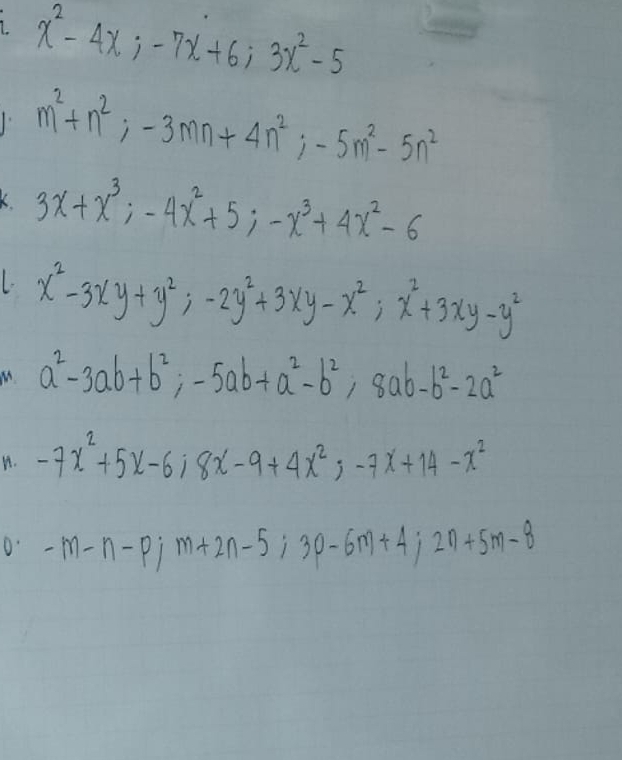 i. x² - 4x ; -7x + 6 ; 3x² - 5
j. m² + n² ; -3mn + 4n² ; -5m² - 5n²
k. 3x + x³ ; -4x² + 5 ; -x³ + 4x² - 6
l. x² - 3xy + y² ; -2y² + 3xy - x² ; x² + 3xy - y²
m. a² - 3ab + b² ; -5ab + a² - b² ; 8ab - b² - 2a²
n. -7x² + 5x - 6 ; 8x - 9 + 4x² ; -7x + 14 - x²
o. -m - n - p ; m + 2n - 5 ; 3p - 6m + 4 ; 2n + 5m - 8